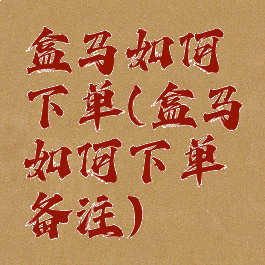 盒马如何
下单(盒马
如何下单
备注)